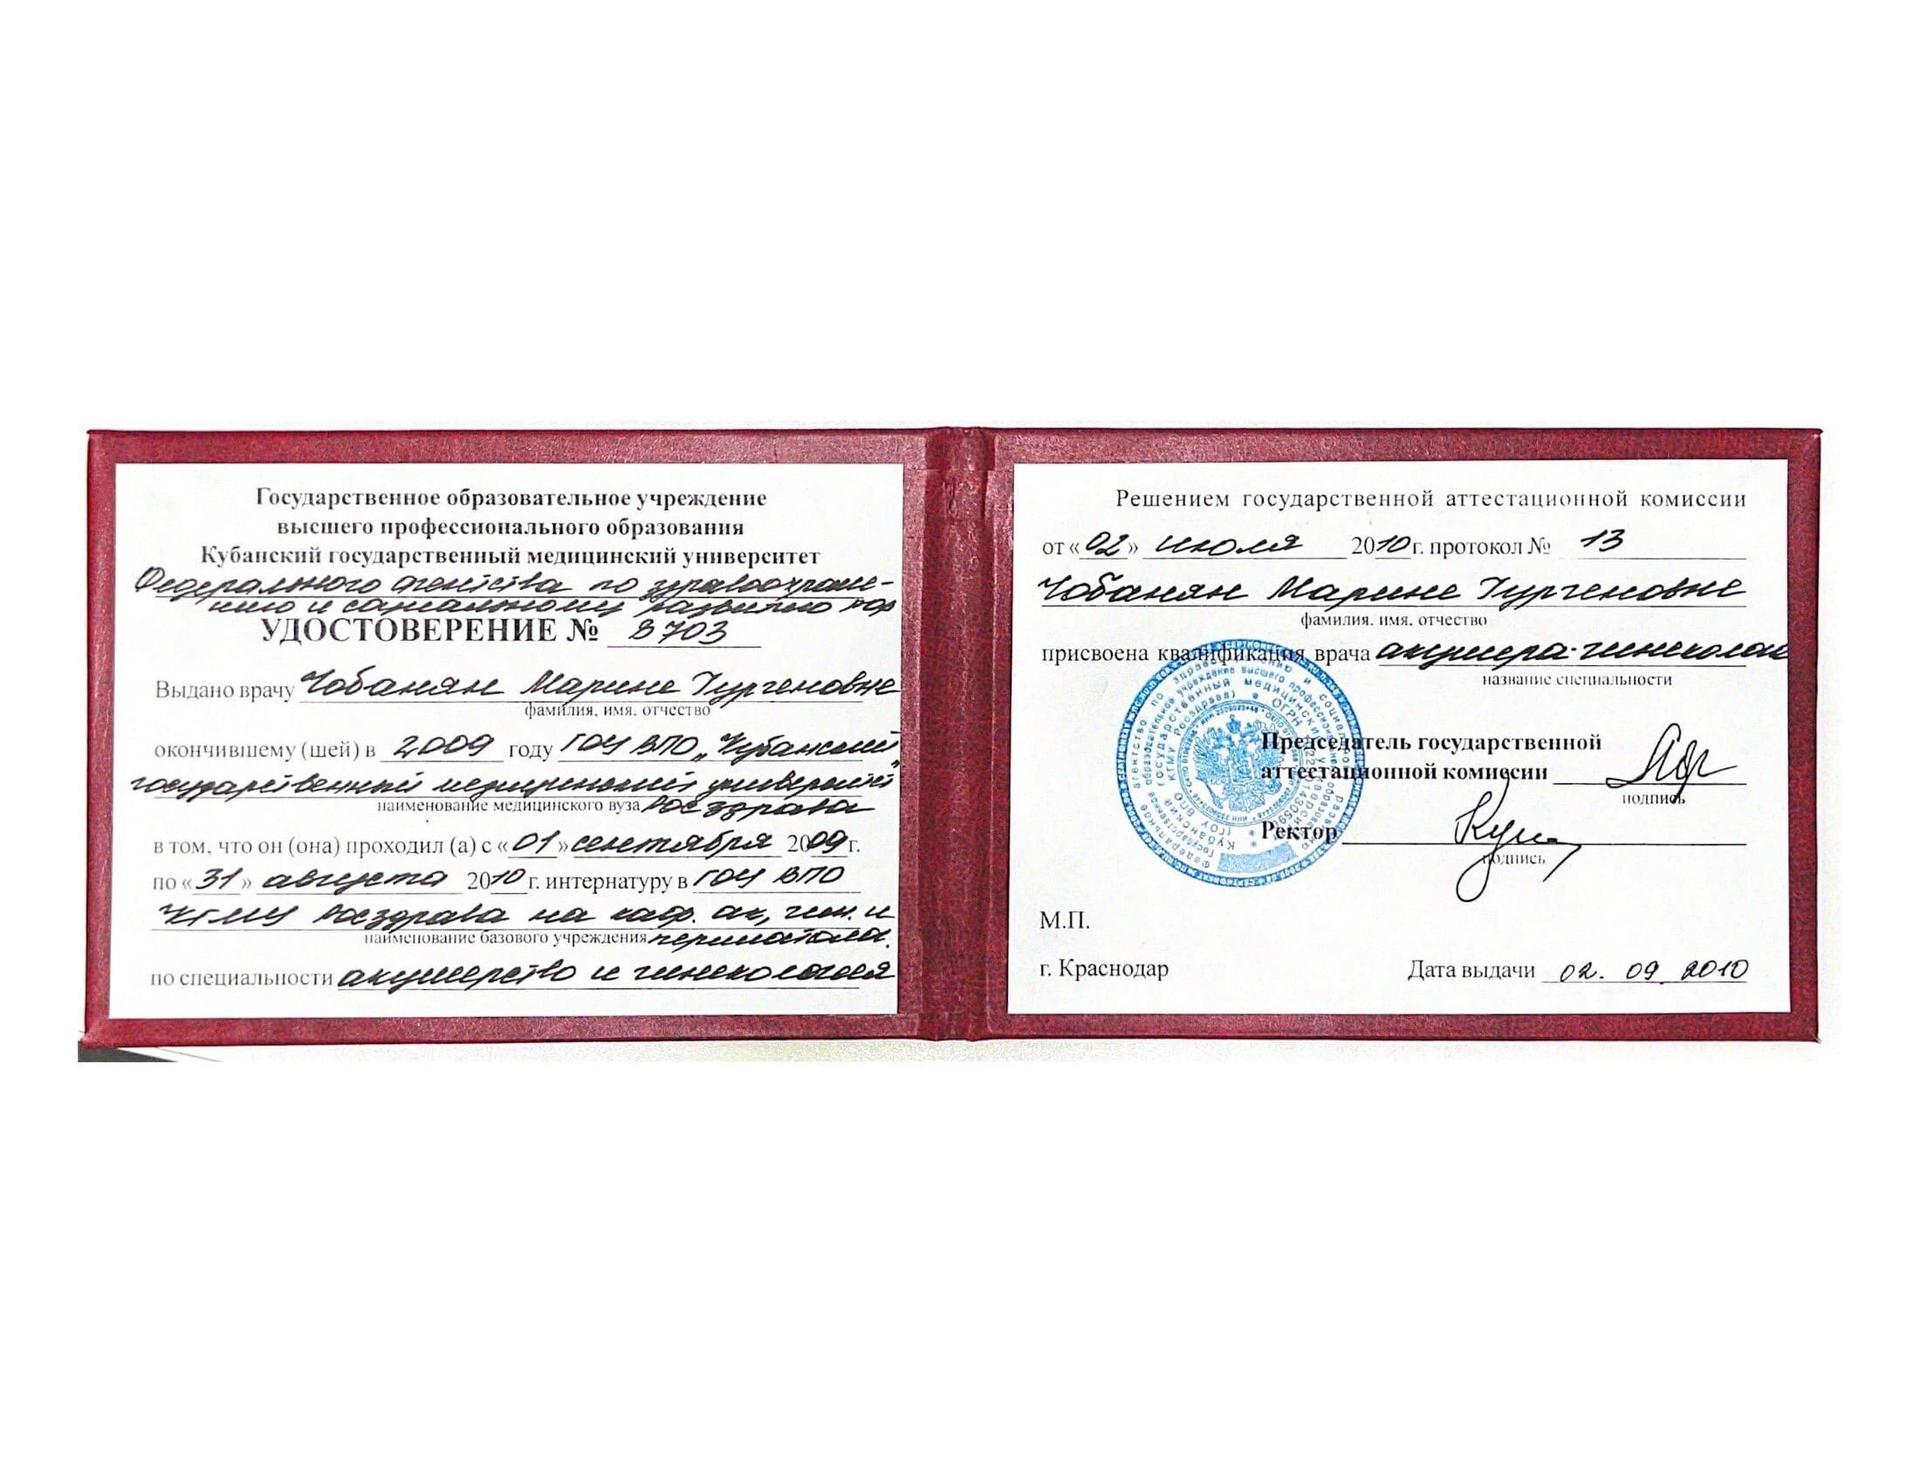 Государственное образовательное учреждение
высшего профессионального образования
Кубанский государственный медицинский университет
Федерального агентства по здравоохране-
нию и социальному развитию
УДОСТОВЕРЕНИЕ № 8703
Выдано врачу Чобанян Марине Тургеновне
фамилия, имя, отчество
окончившему (шей) в 2009 году ГОУ ВПО „Кубанский
государственный медицинский университет"
наименование медицинского вуза Росздрава
в том, что он (она) проходил (а) с «01» сентября 2009 г.
по «31» августа 2010 г. интернатуру в ГОУ ВПО
КГМУ Росздрава на каф. ак., гин. и
наименование базового учреждения перинатол.
по специальности акушерство и гинекология
Решением государственной аттестационной комиссии
от «02» июля 2010 г. протокол № 13
Чобанян Марине Тургеновне
фамилия, имя, отчество
присвоена квалификация врача акушера-гинеколога
название специальности
Председатель государственной
аттестационной комиссии
подпись
Ректор
подпись
М.П.
г. Краснодар
Дата выдачи 02. 09. 2010